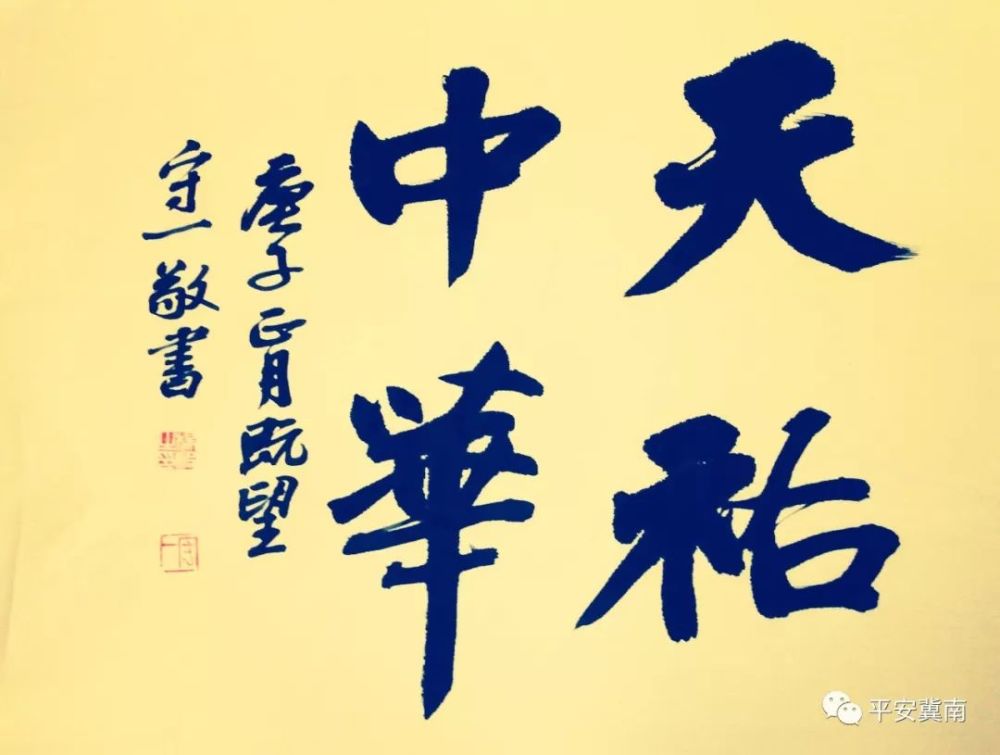 天祐
中華
庚子正月既望
守一敬書
守一
平安冀南